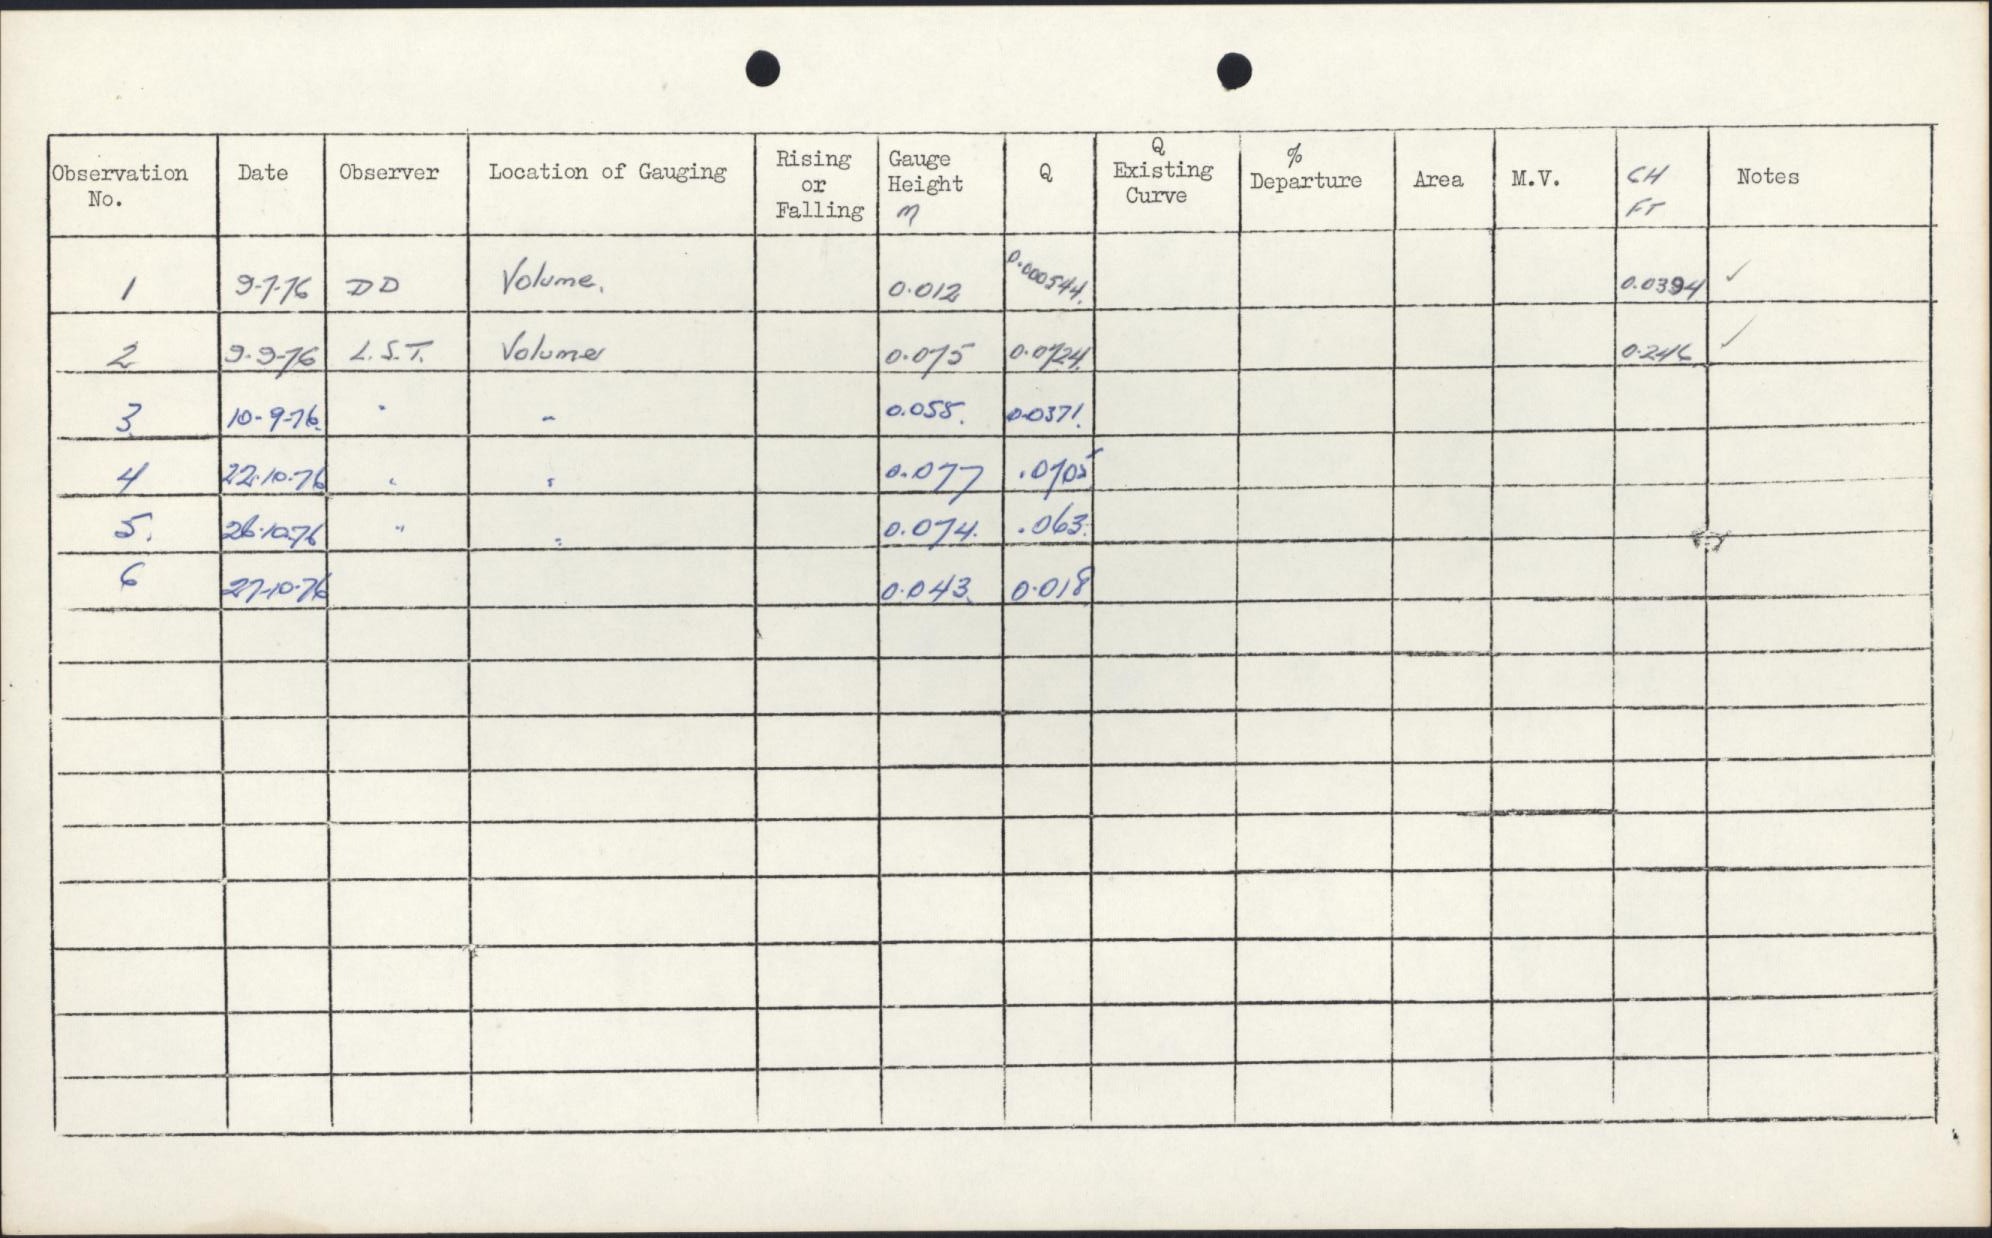 Observation No. Date Observer Location of Gauging Rising or Falling Gauge Height m Q Q Existing Curve % Departure Area M.V. GH FT Notes
1 9-7-76 DD Volume. 0.012 0.000544. 0.0394 ✓
2 9-9-76 L.S.T. Volume 0.075 0.0724. 0.246 ✓
3 10-9-76. " " 0.058. 0.0371.
4 22.10.76 " " 0.077 .0705
5. 26.10.76 " " 0.074. .063.
6 27-10-76 0.043. 0.018